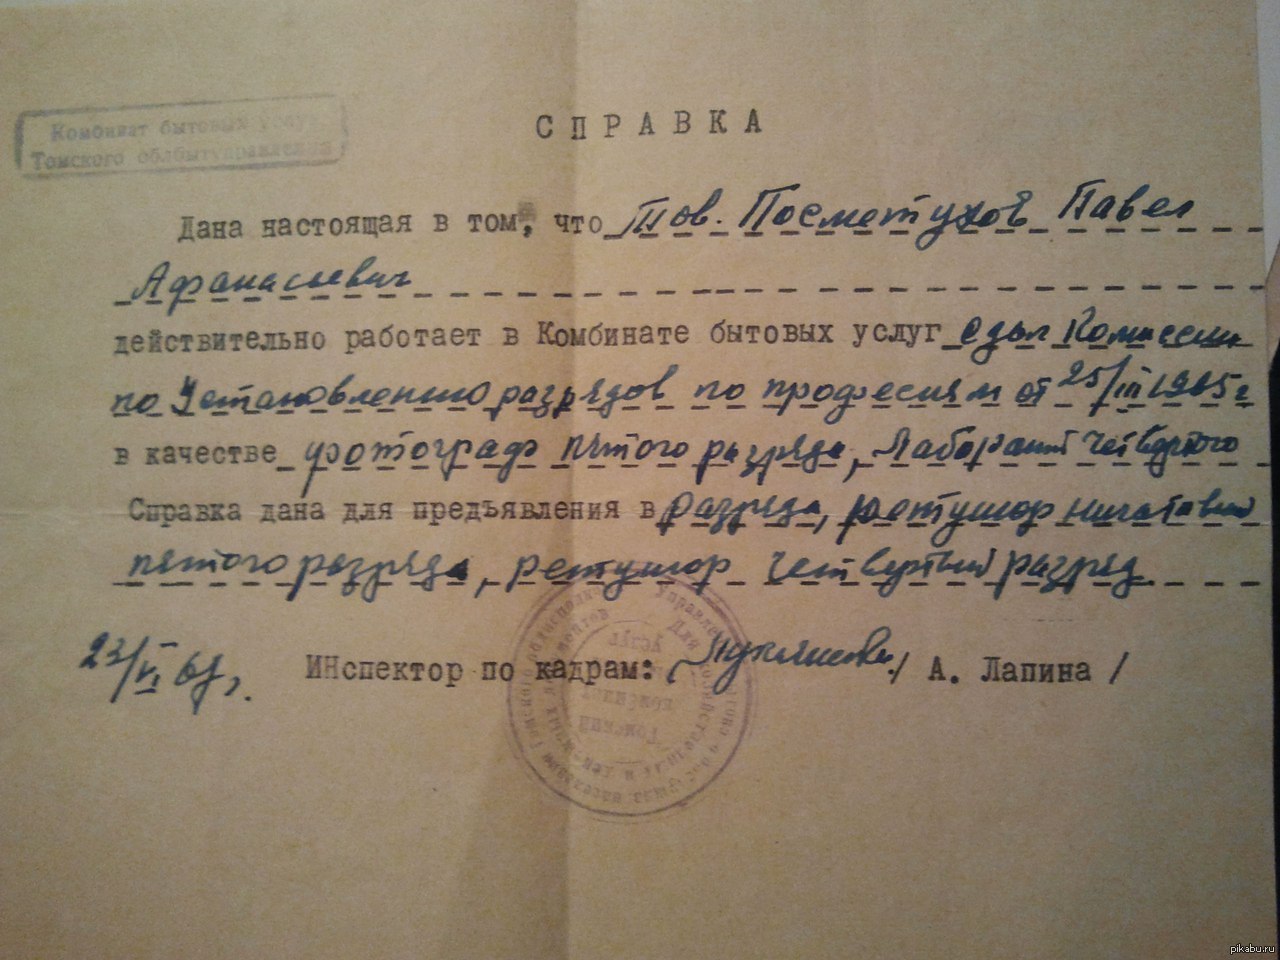 Комбинат бытовых услуг
Томского облбытуправления
СПРАВКА
Дана настоящая в том, что Тов. Посметухов Павел
Афанасьевич
действительно работает в Комбинате бытовых услуг сдал Комиссии
по Установлению разрядов по професиям от 25/III 1965 г
в качестве фотограф пятого разряда, Лаборант четвертого
Справка дана для предъявления в разряда, ретушор
пятого разряда, ретушор четвертый разряд
23/VI 67г.
ИНспектор по кадрам: / А. Лапина /
Томский
услуг
pikabu.ru